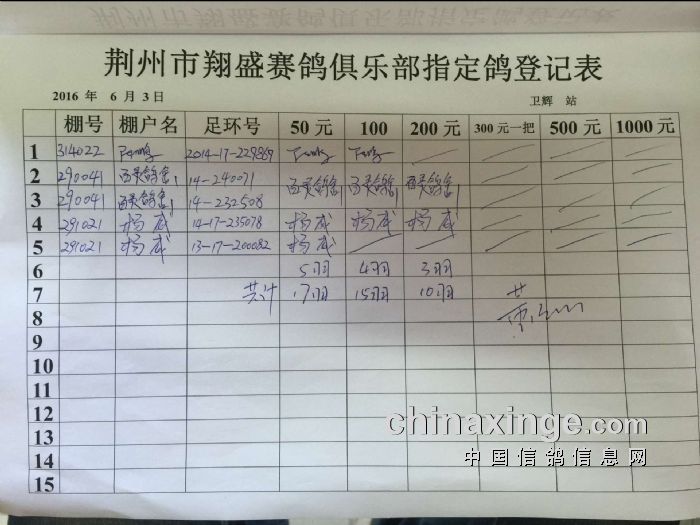 荆州市翔盛赛鸽俱乐部指定鸽登记表
2016 年 6 月 3 日 卫辉 站
棚号 棚户名 足环号 50 元 100 200 元 300 元一把 500 元 1000 元
1 314022 2014-17-229869
2 290041 14-240071
3 290041 14-232508
4 291021 杨威 14-17-235078 杨威 杨威 杨威
5 291021 杨威 13-17-200082 杨威
6 5羽 4羽 3羽
7 共计 17羽 15羽 10羽
8
9
10
11
12
13
14
15
chinaxinge.com
中国信鸽信息网